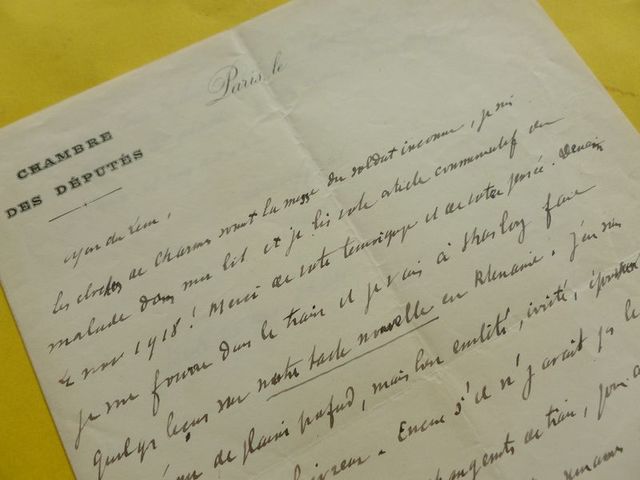 CHAMBRE
DES DÉPUTÉS
Paris, le
Les cloches de Charmes sonnent la messe du soldat inconnu, je suis
malade dans mon lit et je lis votre article commémoratif du
nov 1918 ! Merci de votre témoignage et de votre pensée. Demain
je me fourre dans le train et je vais à Strasbourg faire
quelques leçons sur notre tache nouvelle en Rhénanie. J'en suis
de plaisir profond, mais bien embêté,
Encore s'il n'y avait pas le
changements de train,